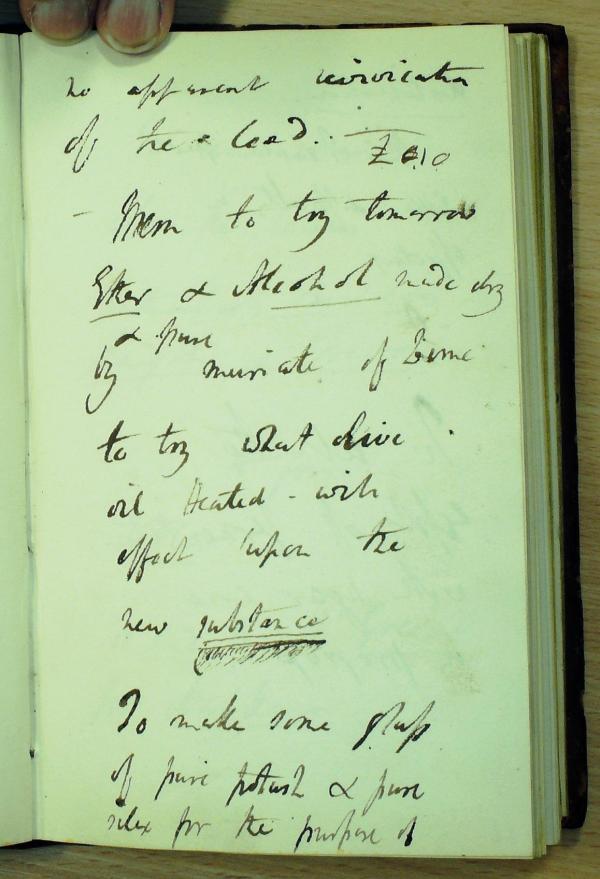 no apparent revivication
of the lead.
- Mem to try tomorrow
Ether & Alcohol made dry
& pure
by muriate of Lime
to try what olive
oil Heated - with
effect upon the
new substance
To make some glass
of pure potash & pure
silex for the purpose of